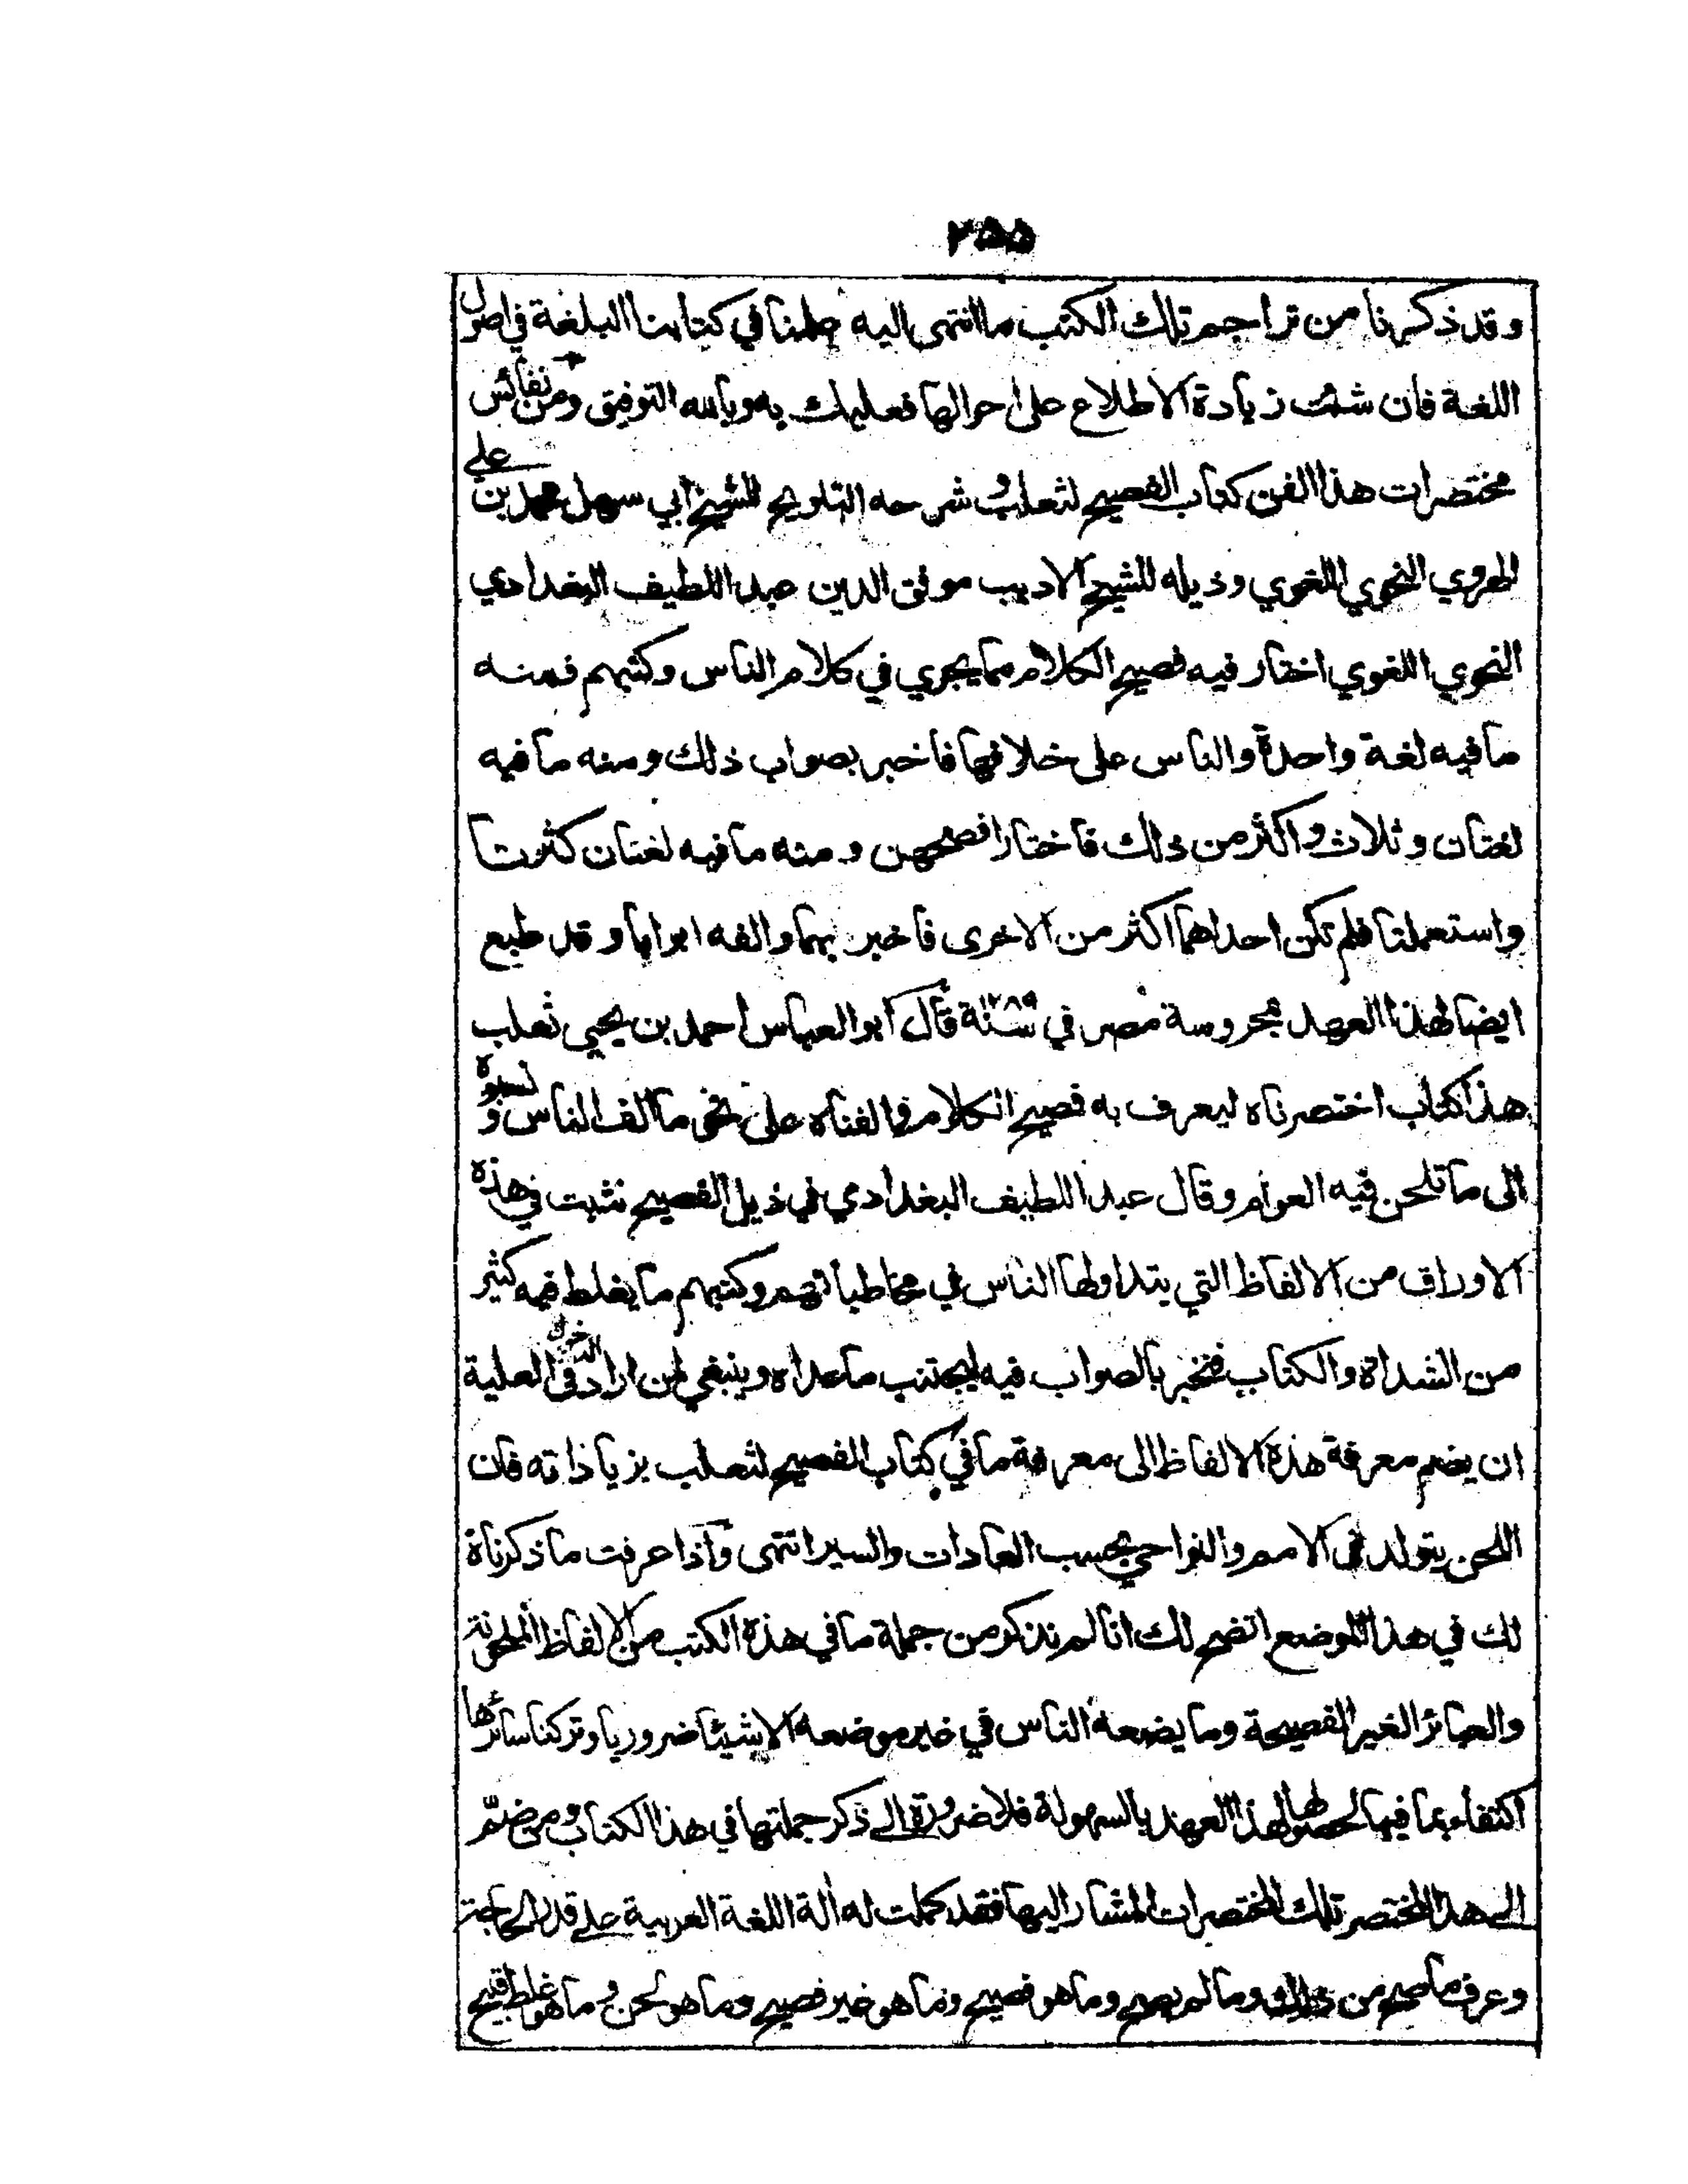 ٢٥٥
وقد ذكرنا من تراجم تلك الكتب ما انتهى اليه علمنا في كتابنا البلغة في اصول
اللغة فان شئت زيادة الاطلاع على احوالها فعليك به وبالله التوفيق ومن نفائس
مختصرات هذا الفن كتاب الفصيح لثعلب وشرحه التلويح للشيخ ابي سهل محمد بن علي
الهروي النحوي اللغوي وذيله للشيخ الاديب موفق الدين عبد اللطيف البغدادي
النحوي اللغوي اختار فيه فصيح الكلام مما يجري في كلام الناس وكتبهم فمنه
ما فيه لغة واحدة والناس على خلافها فاخبر بصواب ذلك ومنه ما فيه
لغتان وثلاث واكثر من ذلك فاختار افصحهن ومنه ما فيه لغتان كثرتا
واستعملتا فلم تكن احداهما اكثر من الاخرى فاخبر بهما والفه ابوابا وقد طبع
ايضا لهذا العهد بمحروسة مصر في سنة ١٢٨٩ قال ابو العباس احمد بن يحيى ثعلب
هذا كتاب اختصرناه ليعرف به فصيح الكلام والفناه على نحو ما الف الناس ونسبوه
الى ما تلحن فيه العوام وقال عبد اللطيف البغدادي في ذيل الفصيح نثبت في هذه
الاوراق من الالفاظ التي يتداولها الناس في مخاطباتهم وكتبهم ما يغلط فيه كثير
من الشداة والكتاب فنخبر بالصواب فيه ليجتنب ما عداه وينبغي لمن اراد العلية
ان يضم معرفة هذه الالفاظ الى معرفة ما في كتاب الفصيح لثعلب بزياداته فان
اللحن يتولد في الامم والنواحي بحسب العادات والسير انتهى واذا عرفت ما ذكرناه
لك في هذا الموضع اتضح لك انا لم نذكر من جملة ما في هذه الكتب من الالفاظ الملحونة
والعبائر الغير الفصيحة وما يضعه الناس في غير موضعه الا شيئا ضروريا وتركنا سائرها
اكتفاء بما فيها لحصولها لهذا العهد بالسهولة فلا ضرورة الى ذكر جملتها في هذا الكتاب ومن ضمّ
الى هذا المختصر تلك المختصرات المشار اليها فقد كملت له آلة اللغة العربية على قدر الحاجة
وعرف ما صح من ذلك وما لم يصح وما هو فصيح وما هو غير فصيح وما هو لحن وما هو غلط قبيح